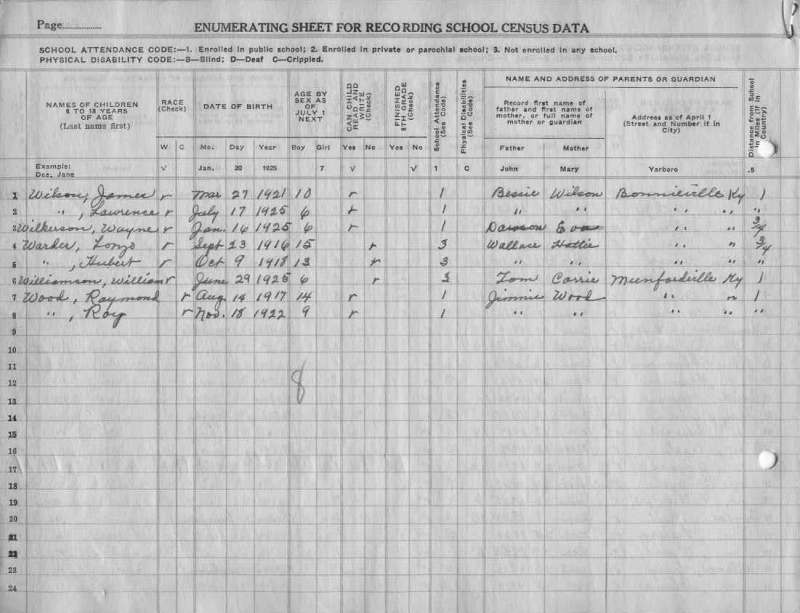 Page
ENUMERATING SHEET FOR RECORDING SCHOOL CENSUS DATA
SCHOOL ATTENDANCE CODE:—1. Enrolled in public school; 2. Enrolled in private or parochial school; 3. Not enrolled in any school.
PHYSICAL DISABILITY CODE:—B—Blind; D—Deaf C—Crippled.
NAMES OF CHILDREN 6 TO 18 YEARS OF AGE (Last name first) RACE (Check) DATE OF BIRTH AGE BY SEX AS OF JULY 1 NEXT CAN CHILD READ AND WRITE (Check) FINISHED 8TH GRADE (Check) School Attendance (See Code) Physical Disabilities (See Code) NAME AND ADDRESS OF PARENTS OR GUARDIAN Distance from School in Miles (If in Country)
Record first name of father and first name of mother, or full name of mother or guardian Address as of April 1 (Street and Number if in City)
W C Mo. Day Year Boy Girl Yes No Yes No Father Mother
Example: Doe, Jane V Jan. 20 1925 7 V V 1 C John Mary Yarboro .5
1 Wilson, James r Mar 27 1921 10 r 1 Bessie Wilson Bonnieville Ky 1
2 " , Lawrence r July 17 1925 6 r 1 " " " " "
3 Wilkerson, Wayne r Jan. 16 1925 6 r 1 Dawson Eva " " 3/4
4 Warder, Lonzo r Sept 23 1916 15 r 3 Wallace Hattie " " 3/4
5 " , Hubert r Oct 9 1918 13 r 3 " " " " "
6 Williamson, William r June 29 1925 6 r 3 Tom Carrie Munfordville Ky 1
7 Wood, Raymond r Aug 14 1917 14 r 1 Jimmie Wood " " 1
8 " , Roy r Nov. 18 1922 9 r 1 " " " " "
9
10
11
12
8
13
14
15
16
17
18
19
20
21
22
23
24